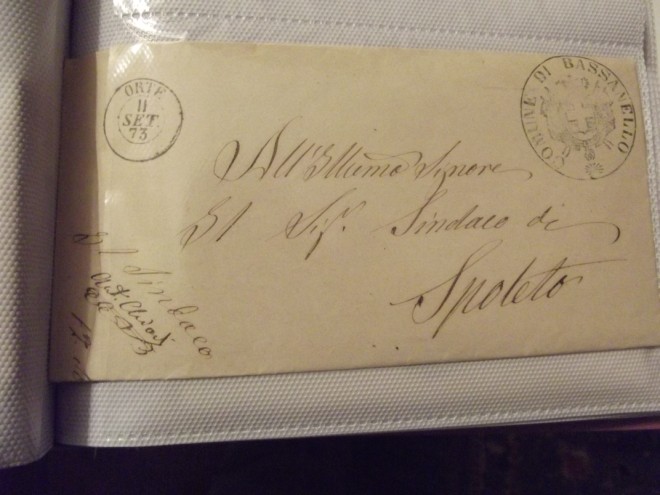 ORTE
11
SET
73
COMUNE DI BASSANELLO
All'Illumo Signore
Il Sigr. Sindaco di
Spoleto
Il Sindaco